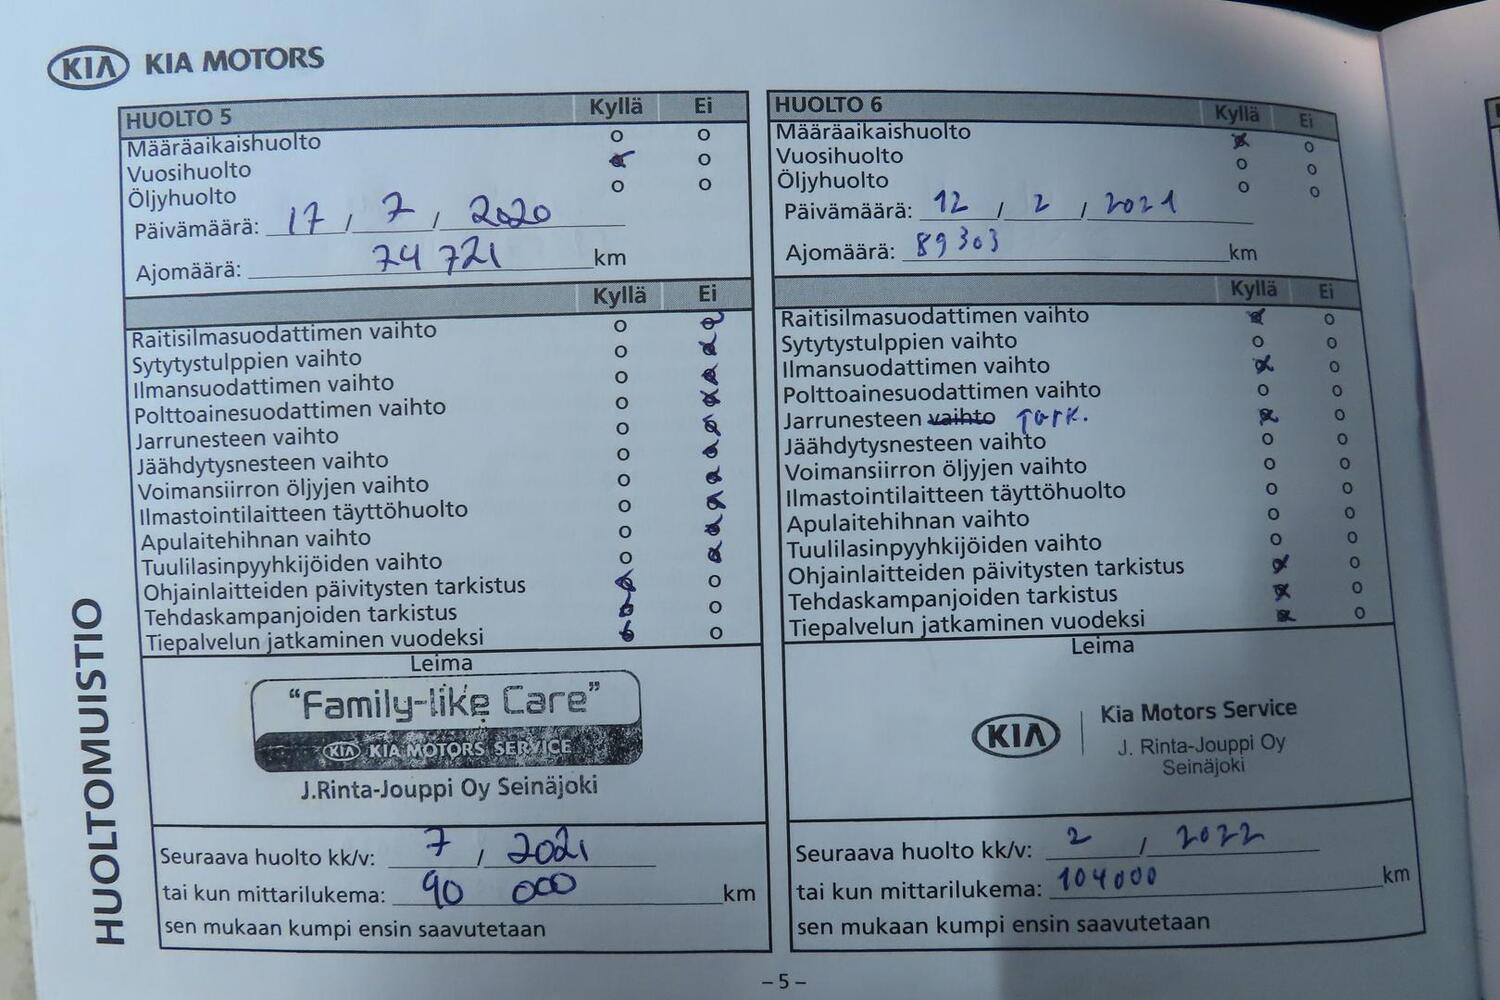 KIA KIA MOTORS
HUOLTOMUISTIO
HUOLTO 5 Kyllä Ei
Määräaikaishuolto o o
Vuosihuolto o
Öljyhuolto o o
Päivämäärä: 17 / 7 / 2020
Ajomäärä: 74 721 km
Kyllä Ei
Raitisilmasuodattimen vaihto o
Sytytystulppien vaihto o
Ilmansuodattimen vaihto o
Polttoainesuodattimen vaihto o
Jarrunesteen vaihto o
Jäähdytysnesteen vaihto o
Voimansiirron öljyjen vaihto o
Ilmastointilaitteen täyttöhuolto o
Apulaitehihnan vaihto o
Tuulilasinpyyhkijöiden vaihto o
Ohjainlaitteiden päivitysten tarkistus o
Tehdaskampanjoiden tarkistus o
Tiepalvelun jatkaminen vuodeksi o
Leima
"Family-like Care"
KIA KIA MOTORS SERVICE
J.Rinta-Jouppi Oy Seinäjoki
Seuraava huolto kk/v: 7 / 2021
tai kun mittarilukema: 90 000 km
sen mukaan kumpi ensin saavutetaan
HUOLTO 6 Kyllä Ei
Määräaikaishuolto x o
Vuosihuolto o o
Öljyhuolto o o
Päivämäärä: 12 / 2 / 2021
Ajomäärä: 89303 km
Kyllä Ei
Raitisilmasuodattimen vaihto x o
Sytytystulppien vaihto o o
Ilmansuodattimen vaihto x o
Polttoainesuodattimen vaihto o o
Jarrunesteen vaihto Tark. x o
Jäähdytysnesteen vaihto o o
Voimansiirron öljyjen vaihto o o
Ilmastointilaitteen täyttöhuolto o o
Apulaitehihnan vaihto o o
Tuulilasinpyyhkijöiden vaihto o o
Ohjainlaitteiden päivitysten tarkistus x o
Tehdaskampanjoiden tarkistus x o
Tiepalvelun jatkaminen vuodeksi x o
Leima
KIA Kia Motors Service
J. Rinta-Jouppi Oy
Seinäjoki
Seuraava huolto kk/v: 2 / 2022
tai kun mittarilukema: 104000 km
sen mukaan kumpi ensin saavutetaan
– 5 –